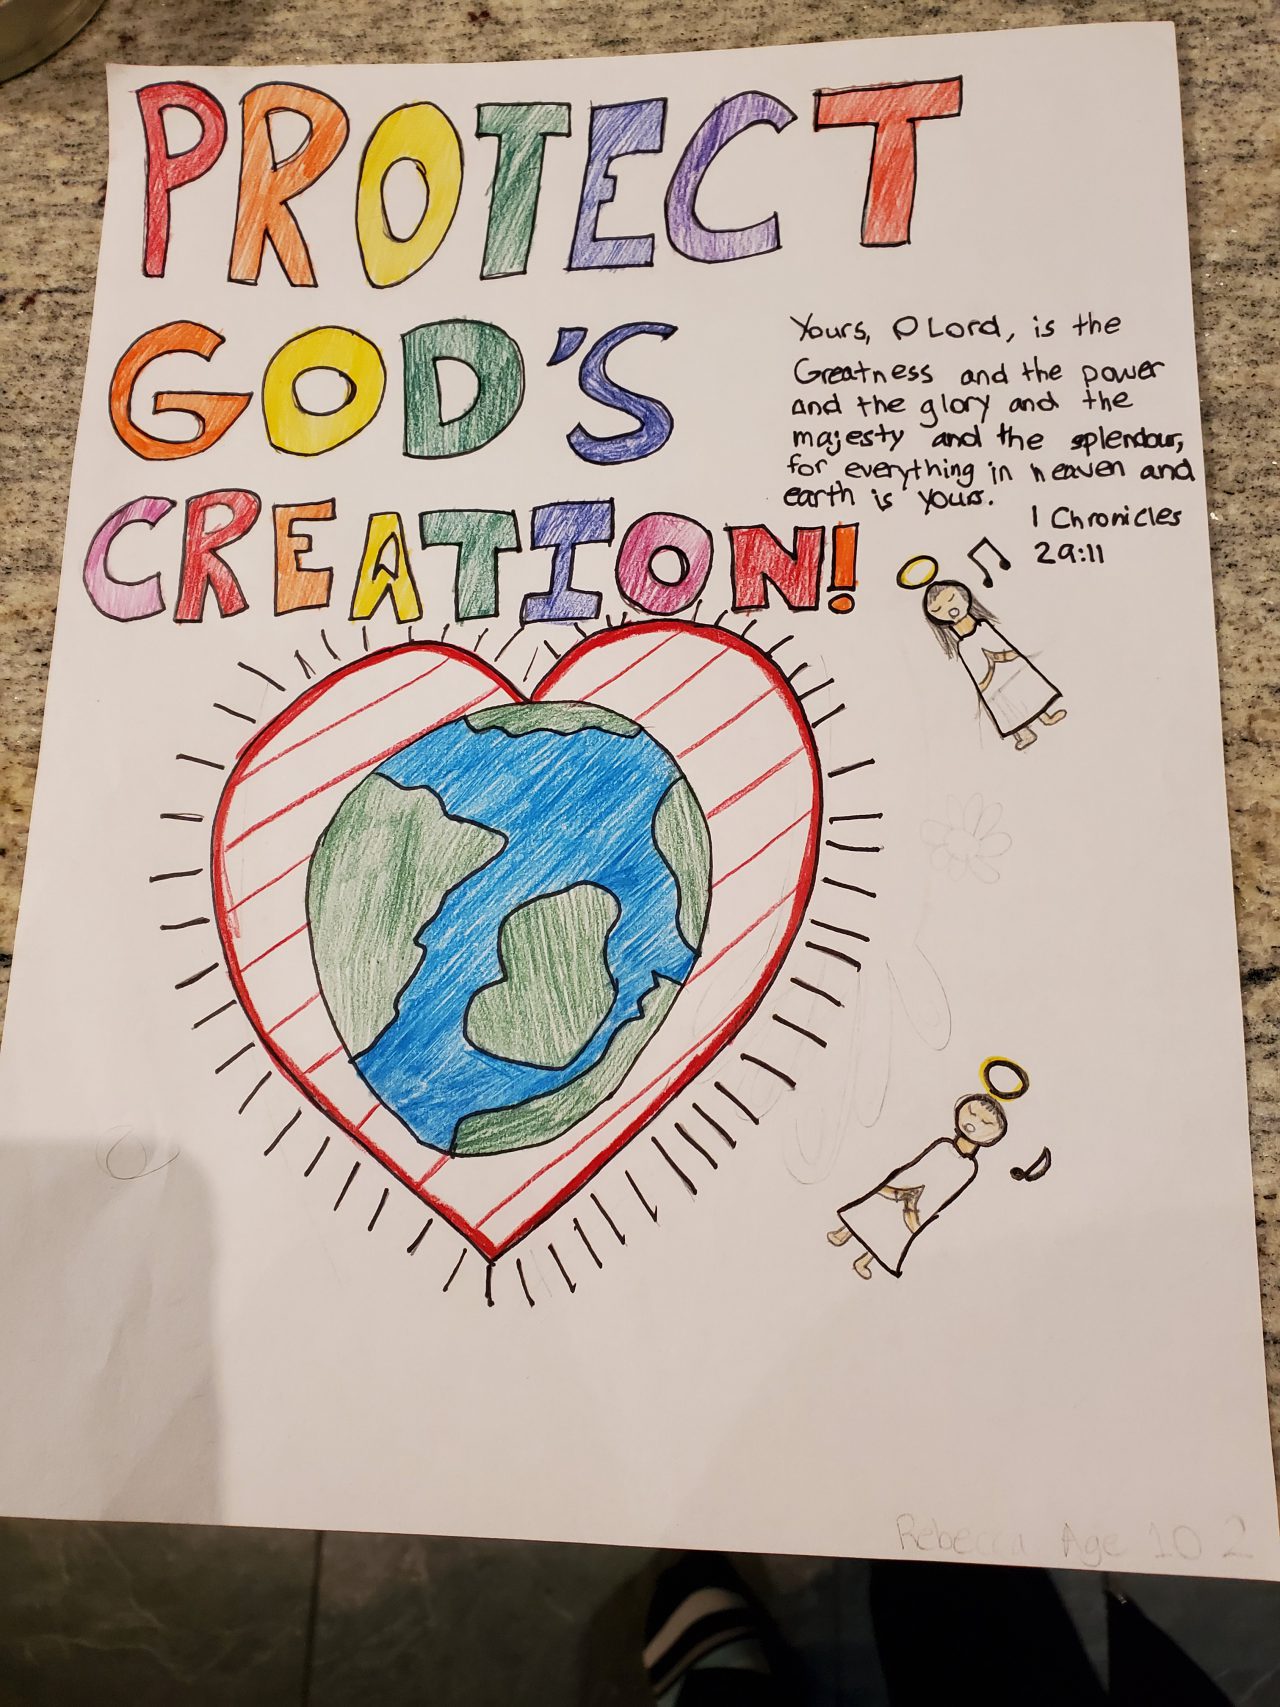 PROTECT
GOD'S
CREATION!
Yours, O Lord, is the
Greatness and the power
and the glory and the
majesty and the splendour,
for everything in heaven and
earth is yours.
1 Chronicles
29:11
Rebecca Age 10 2